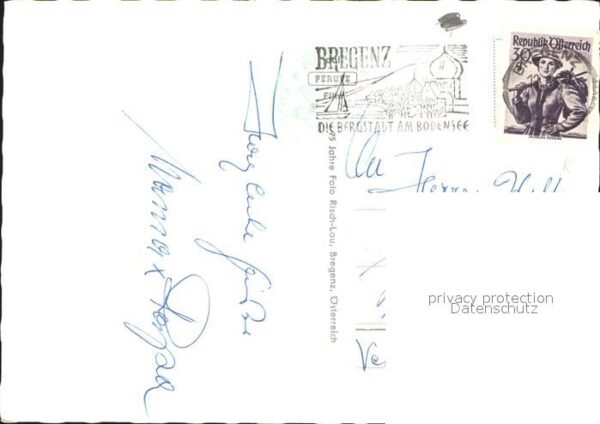 BREGENZ
PERUTZ
FILM
DIE BERGSTADT AM BODENSEE
Republik Österreich
30
Herzliche Grüße
Mama x Papa
75 Jahre Foto Risch-Lau, Bregenz, Österreich
An
Herrn
privacy protection
Datenschutz